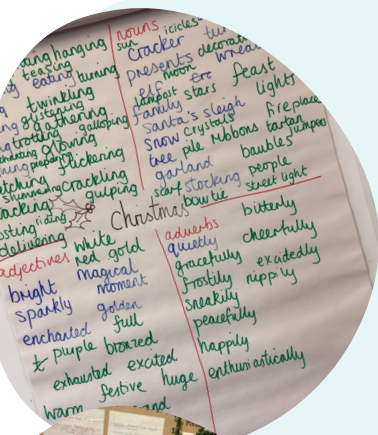 hanging
teasing
eating burning
twinkling
glistening
gathering
trotting galloping
glowing
preparing
flickering
crackling
gulping
riding
delivering
nouns icicles
sun
cracker
presents decorat
moon
elf wrea
lampost stars feast
family lights
santa's sleigh
snow crystals fireplace
pile ribbons tartan
tree jumpers
garland baubles
stocking people
scarf bow tie street light
Christmas
adjectives white
red gold
bright magical
sparkly moment
enchanted golden
full
purple bronzed
exhausted excited
festive huge
warm
adverbs bitterly
quietly
cheerfully
gracefully excitedly
frostily nippily
sneakily
peacefully
happily
enthusiastically